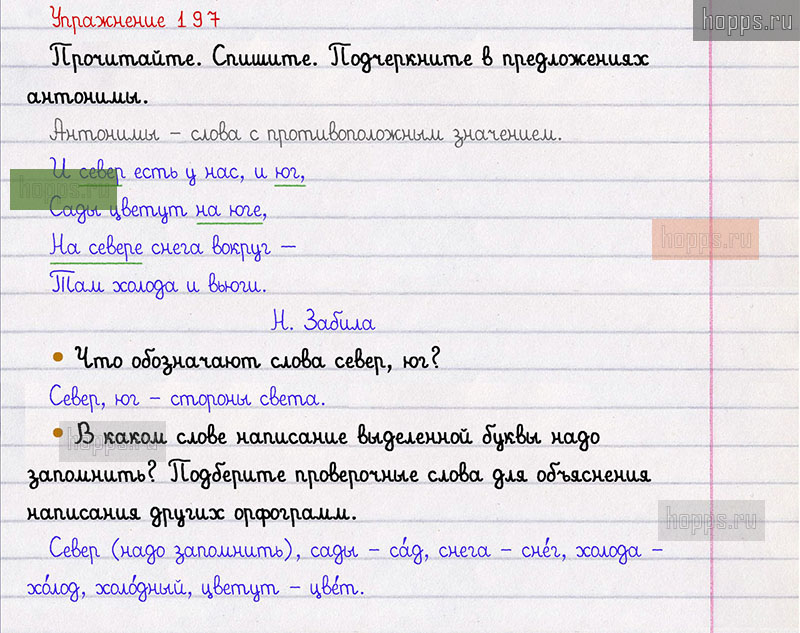 Упражнение 197
hopps.ru
Прочитайте. Спишите. Подчеркните в предложениях
антонимы.
Антонимы – слова с противоположным значением.
И север есть у нас, и юг,
hopps.ru
Сады цветут на юге,
На севере снега вокруг –
hopps.ru
Там холода и вьюги.
Н. Забила
• Что обозначают слова север, юг?
Север, юг – стороны света.
• В каком слове написание выделенной буквы надо
hopps.ru
запомнить? Подберите проверочные слова для объяснения
написания других орфограмм.
hopps.ru
Север (надо запомнить), сады – са́д, снега – сне́г, холода –
хо́лод, холо́дный, цветут – цве́т.